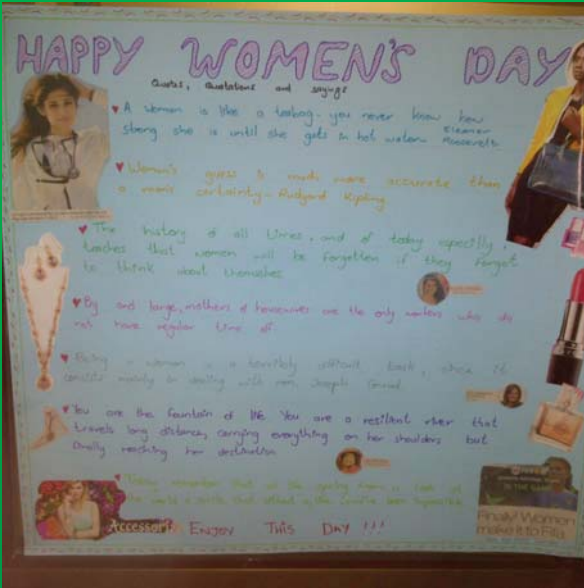 HAPPY WOMEN'S DAY
Quotes, Quotations and sayings
A woman is like a teabag - you never know how
strong she is until she gets in hot water - Eleanor
Roosevelt
Woman's guess is much more accurate than
a man's certainity - Rudyard Kipling
The history of all times, and of today especially,
teaches that women will be forgotten if they forget
to think about themselves
By and large, mothers & housewives are the only workers who do
not have regular time off.
Being a woman is a terribly difficult task, since it
consists mainly in dealing with men. Joseph Conrad
You are the fountain of life You are a resilient river that
travels long distance, carrying everything on her shoulders but
finally reaching her destination
Today remember that
the world
Finally! Women
make it to Fifa
Accessori
ENJOY THIS DAY !!!